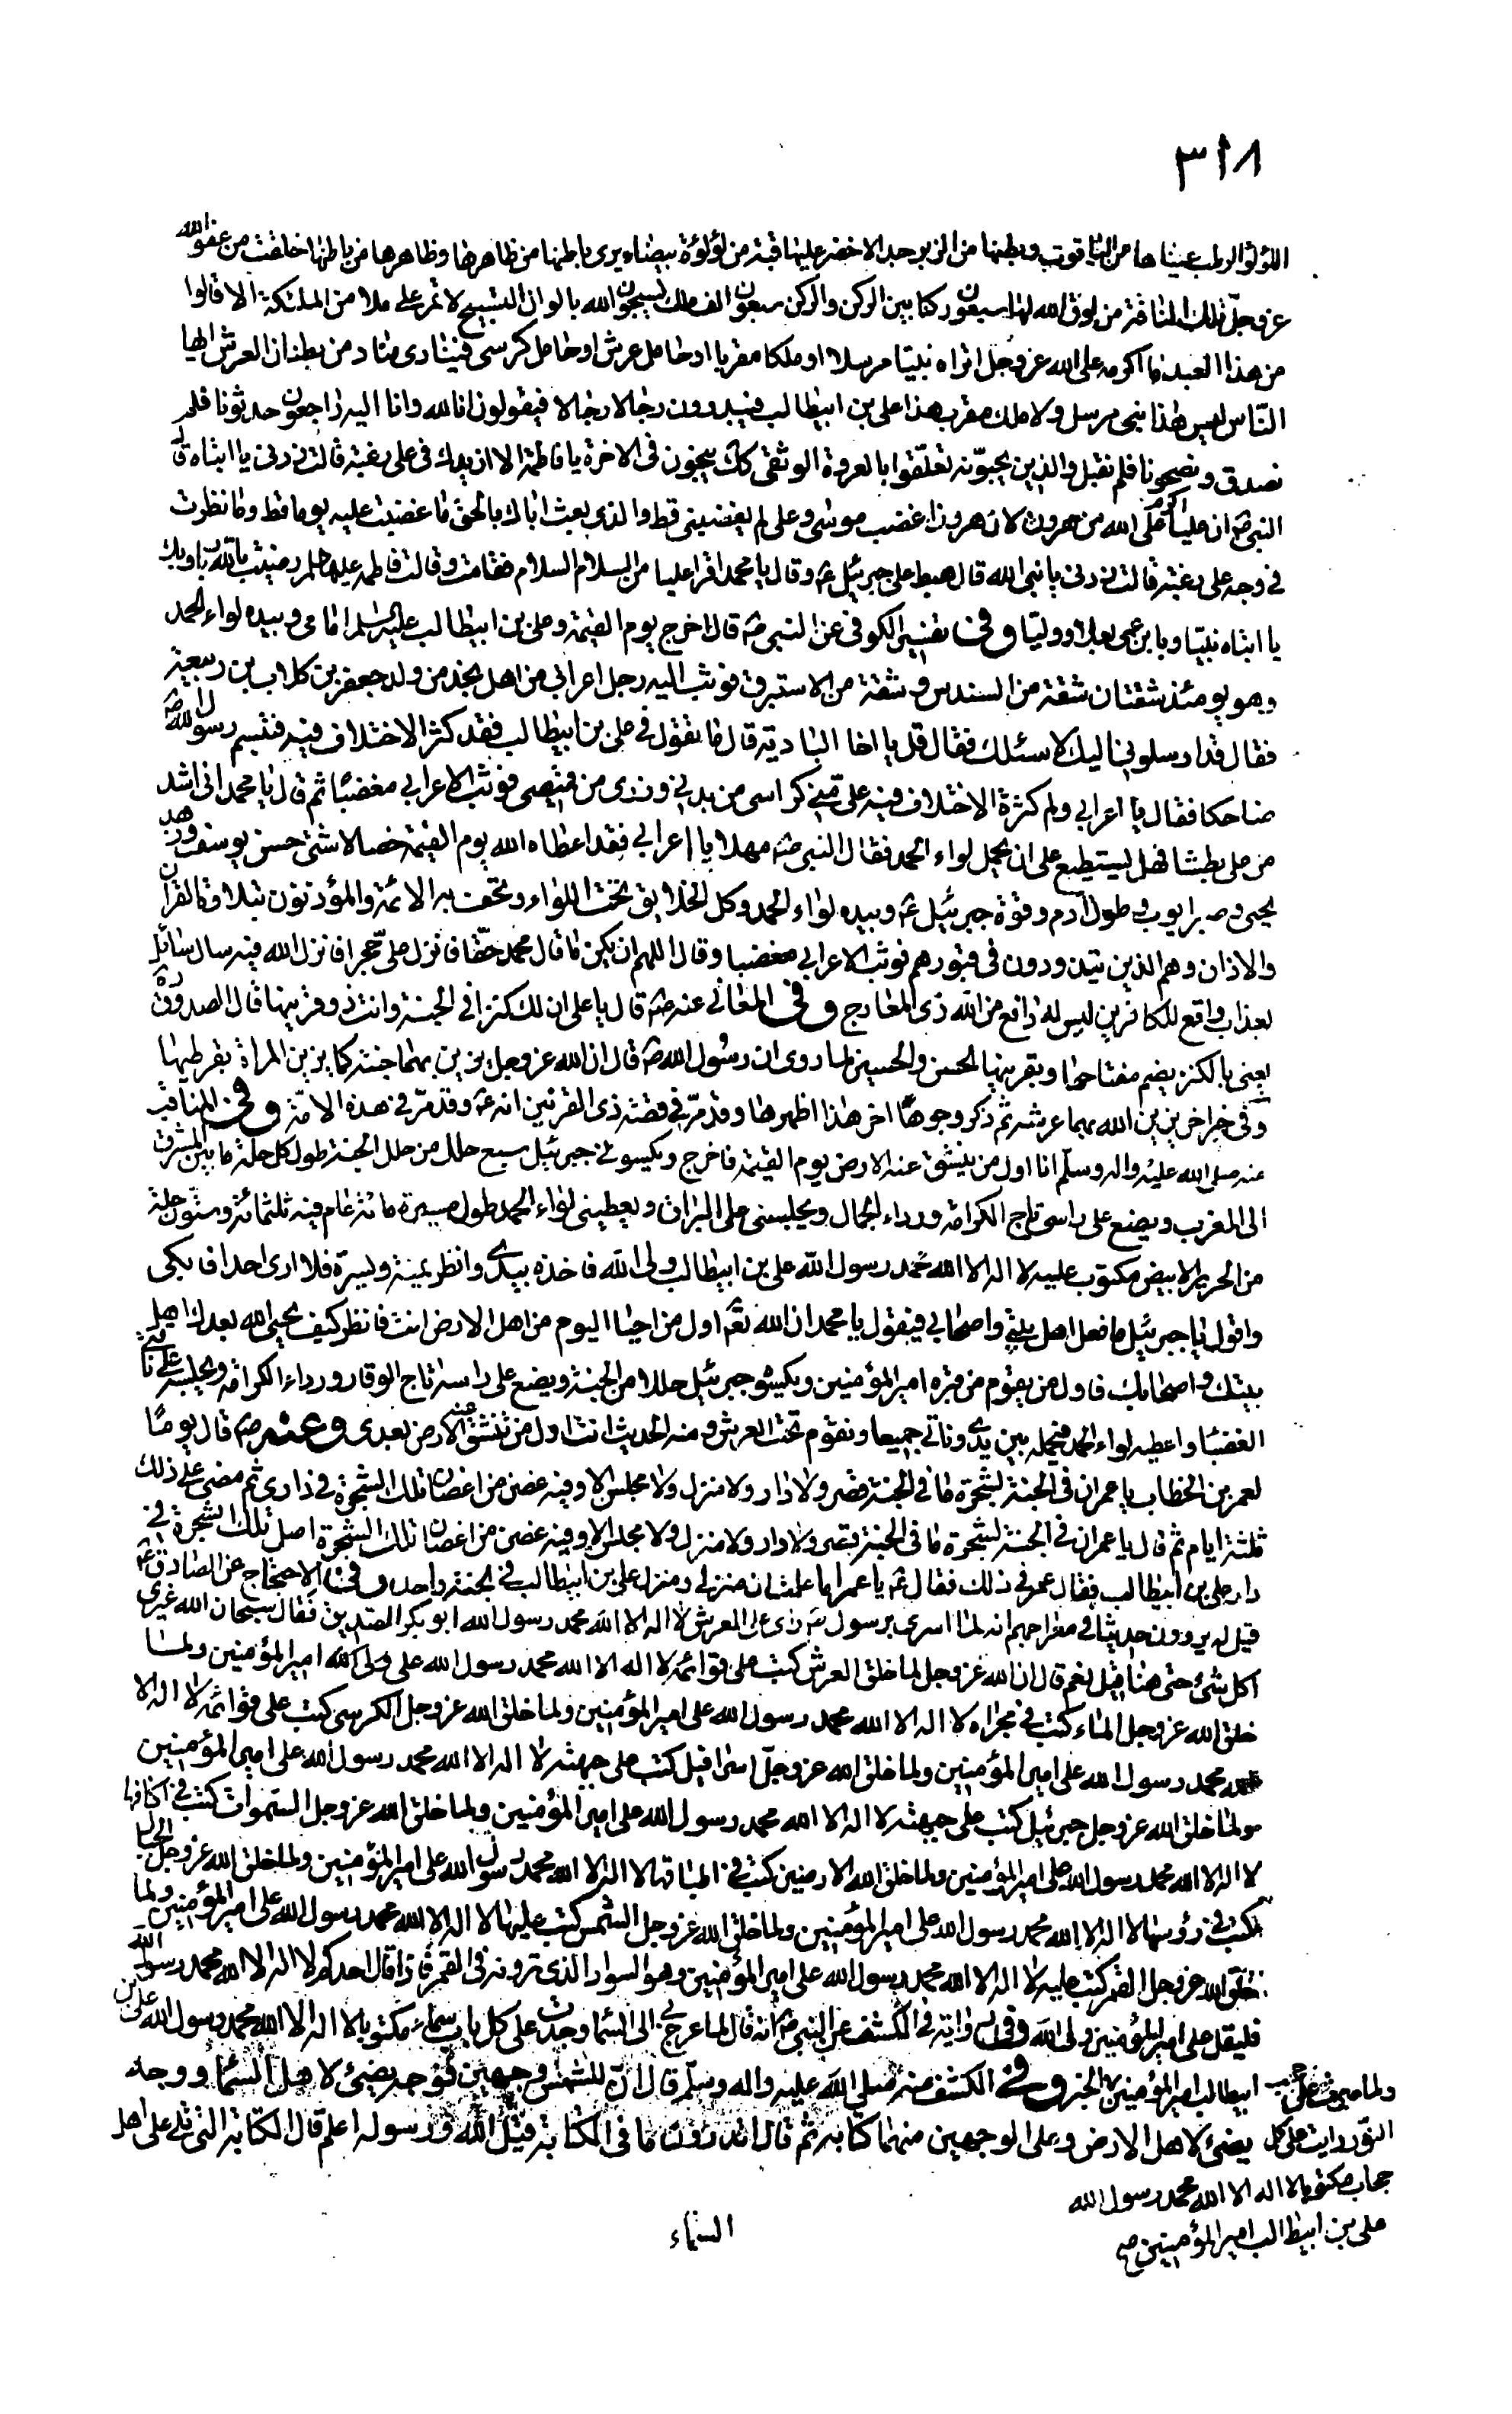 ٣١٨
اللؤلؤ الرطب عيناها من الياقوت وبطنها من الزبرجد الاخضر عليها قبة من لؤلؤة بيضاء يرى باطنها من ظاهرها وظاهرها من باطنها خلقت من عفو الله
عز وجل تلك الناقة من نوق الله لها سبعون ركنا بين الركن والركن سبعون الف ملك يسبحون الله بالوان التسبيح لا تمر على ملا من الملئكة الا قالوا
من هذا العبد ما اكرمه على الله عز وجل اتراه نبيا مرسلا او ملكا مقربا او حامل عرش او حامل كرسى فينادى مناد من بطنان العرش ايها
الناس ليس هذا بنبى مرسل ولا ملك مقرب هذا على بن ابيطالب فيبدرون رجالا رجالا فيقولون انا لله وانا اليه راجعون حدثونا فلم
نصدق ونصحونا فلم نقبل والذين يحبونه تعلقوا بالعروة الوثقى كذلك ينجون فى الاخرة يا فاطمة الا ازيدك فى على رغبة قالت زدنى يا ابتاه قال
النبى ص ان عليا اكرم على الله من هرون لان هرون اغضب موسى وعلى لم يغضبنى قط والذى بعث اباك بالحق ما غضبت عليه يوما قط وما نظرت
فى وجه على رغبة قالت زدنى يا نبى الله قال هبط على جبرئيل ع وقال يا محمد اقرا عليا من السلام السلام فقامت وقالت فاطمه عليها سلم رضيت بالله ربا وبك
يا ابتاه نبيا وبابن عمى بعلا ووليا وفى تفسير الكوفى عن النبى ص قال اخرج يوم القيمة وعلى بن ابيطالب عليه السلم امامى وبيده لواء الحمد
وهو يومئذ شقتان شقة من السندس وشقة من الاستبرق فوثب اليه رجل اعرابى من اهل نجد من ولد جعفر بن كلاب بن ربيعة
فقال قد ارسلونى اليك لاسئلك فقال قل يا اخا البادية قال ما تقول فى على بن ابيطالب فقد كثر الاختلاف فيه فتبسم رسول الله ص
ضاحكا فقال يا اعرابى ولم كثرة الاختلاف فيه على منى كراسى من بدنى وزرى من قميصى فوثب الاعرابى مغضبا ثم قال يا محمد انى اشد
من على بطشا فهل يستطيع على ان يحمل لواء الحمد فقال النبى ص مهلا يا اعرابى فقد اعطاه الله يوم القيمة خصالا شتى حسن يوسف وزهد
يحيى وصبر ايوب وطول آدم وقوة جبرئيل ع وبيده لواء الحمد وكل الخلايق تحت اللواء وتحف به الائمة والمؤذنون بتلاوة القرآن
والاذان وهم الذين يتبددون فى قبورهم فوثب الاعرابى مغضبا وقال اللهم ان يكن ما قال محمد حقا فانزل على حجرا فانزل الله فيه سال سائل
بعذاب واقع للكافرين ليس له دافع من الله ذى المعارج وفى المعانى عنه ص قال يا على ان لك كنزا فى الجنة وانت ذو قرنيها قال الصدوق ره
يعنى بالكنز يضم مفتاحها وبقرنيها الحسن والحسين لما روى ان رسول الله ص قال ان الله عز وجل يزين بهما جنته كما يزين المراة بقرطيها
وفى خبر اخر يزين الله بهما عرشه ثم ذكر وجوها اخر هذا اظهرها وقد مر فى قصة ذى القرنين انه ع وقد مر فى هذه الامة وفى المناقب
عنه صلى الله عليه واله وسلم انا اول من ينشق عنه الارض يوم القيمة فاخرج ويكسونى جبرئيل سبع حلل من حلل الجنة طول كل حلة ما بين المشرق
الى المغرب ويضع على راسى تاج الكرامة ورداء الجمال ويجلسنى على البراق ويعطينى لواء الحمد طول مسيرة مائة عام فيه ثلثمائة وستون حلة
من الحرير الابيض مكتوب عليه لا اله الا الله محمد رسول الله على بن ابيطالب ولى الله فاخذه بيدى وانظر يمينة ويسرة فلا ارى احدا فابكى
واقول يا جبرئيل ما فعل اهل بيتى واصحابى فيقول يا محمد ان الله تع اول من احيا اليوم من اهل الارض انت فانظر كيف يحيى الله بعدك اهل
بيتك واصحابك فاول من يقوم من قبره امير المؤمنين ويكسوه جبرئيل حللا من الجنة ويضع على راسه تاج الوقار ورداء الكرامة ويجلسه على ناقتى
العضبا واعطيه لواء الحمد فيحمله بين يدى وناتى جميعا ونقوم تحت العرش ومنه الحديث انت اول من تنشق عنه الارض بعدى وعنه ص قال يوما
لعمر بن الخطاب يا عمر ان فى الجنة لشجرة ما فى الجنة قصر ولا دار ولا منزل ولا مجلس الا وفيه غصن من اغصان تلك الشجرة فى دارى ثم مضى على ذلك
ثلثة ايام ثم قال يا عمر ان فى الجنة لشجرة ما فى الجنة قصر ولا دار ولا منزل ولا مجلس الا وفيه غصن من اغصان تلك الشجرة اصل تلك الشجرة فى
دار على بن ابيطالب فقال عمر فى ذلك فقال ص يا عمر اما علمت ان منزلى ومنزل على بن ابيطالب فى الجنة واحد وفى الاحتجاج عن الصادق ع
قيل له يروون حديثا فى معراجهم انه لما اسرى برسول الله راى على العرش لا اله الا الله محمد رسول الله ابو بكر الصديق فقال سبحان الله غيرى
اكل شئ حتى هذا قيل نعم قال ان الله عز وجل لما خلق العرش كتب على قوائمه لا اله الا الله محمد رسول الله على ولى الله امير المؤمنين ولما
خلق الله عز وجل الماء كتب فى مجراه لا اله الا الله محمد رسول الله على امير المؤمنين ولما خلق الله عز وجل الكرسى كتب على قوائمه لا اله الا
الله محمد رسول الله على امير المؤمنين ولما خلق الله عز وجل اسرافيل كتب على جبهته لا اله الا الله محمد رسول الله على امير المؤمنين
ولما خلق الله عز وجل جبرئيل كتب على جبهته لا اله الا الله محمد رسول الله على امير المؤمنين ولما خلق الله عز وجل السموات كتب فى اكنافها
لا اله الا الله محمد رسول الله على امير المؤمنين ولما خلق الله الارضين كتب فى اطباقها لا اله الا الله محمد رسول الله على امير المؤمنين ولما خلق الله عز وجل الجبال
كتب فى رؤسها لا اله الا الله محمد رسول الله على امير المؤمنين ولما خلق الله عز وجل الشمس كتب عليها لا اله الا الله محمد رسول الله على امير المؤمنين ولما
خلق الله عز وجل القمر كتب عليه لا اله الا الله محمد رسول الله على امير المؤمنين وهو السواد الذى ترونه فى القمر فاذا قال احدكم لا اله الا الله محمد رسول الله
فليقل على امير المؤمنين ولى الله وفى رواية فى الكشف عن النبى ص انه قال لما عرج بى الى السما وجدت على كل باب سماء مكتوبا لا اله الا الله محمد رسول الله على بن
ابيطالب امير المؤمنين الخبر وفى الكشف عنه صلى الله عليه واله وسلم قال ان للشمس وجهين فوجه يضيئ لاهل السما ووجه
يضيئ لاهل الارض وعلى الوجهين منهما كتابة ثم قال اتدرون ما فى الكتابة قيل الله ورسوله اعلم قال الكتابة التى تلى على اهل
السماء
ولما صرت على حجب
النور رايت على كل
حجاب مكتوبا لا اله الا الله محمد رسول الله
على بن ابيطالب امير المؤمنين صح